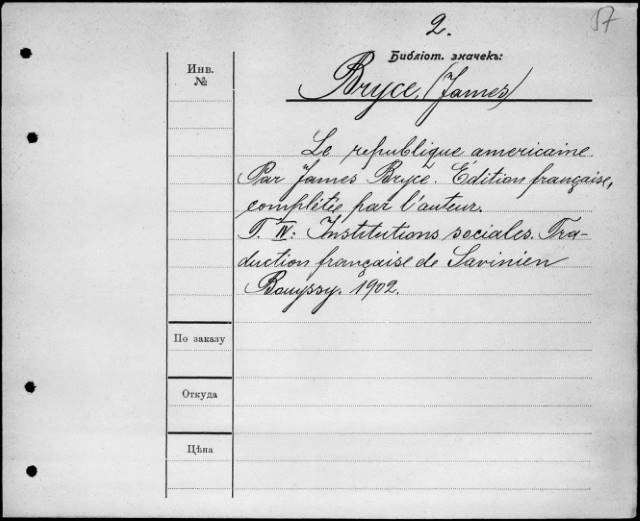 2.
57
Библіот. значекъ:
Инв.
№
Bryce, (James)
Le republique americaine
Par James Bryce. Édition française,
complétée par l'auteur.
T. IV: Institutions sociales. Tra-
duction française de Savinien
Bouyssy. 1902.
По заказу
Откуда
Цѣна